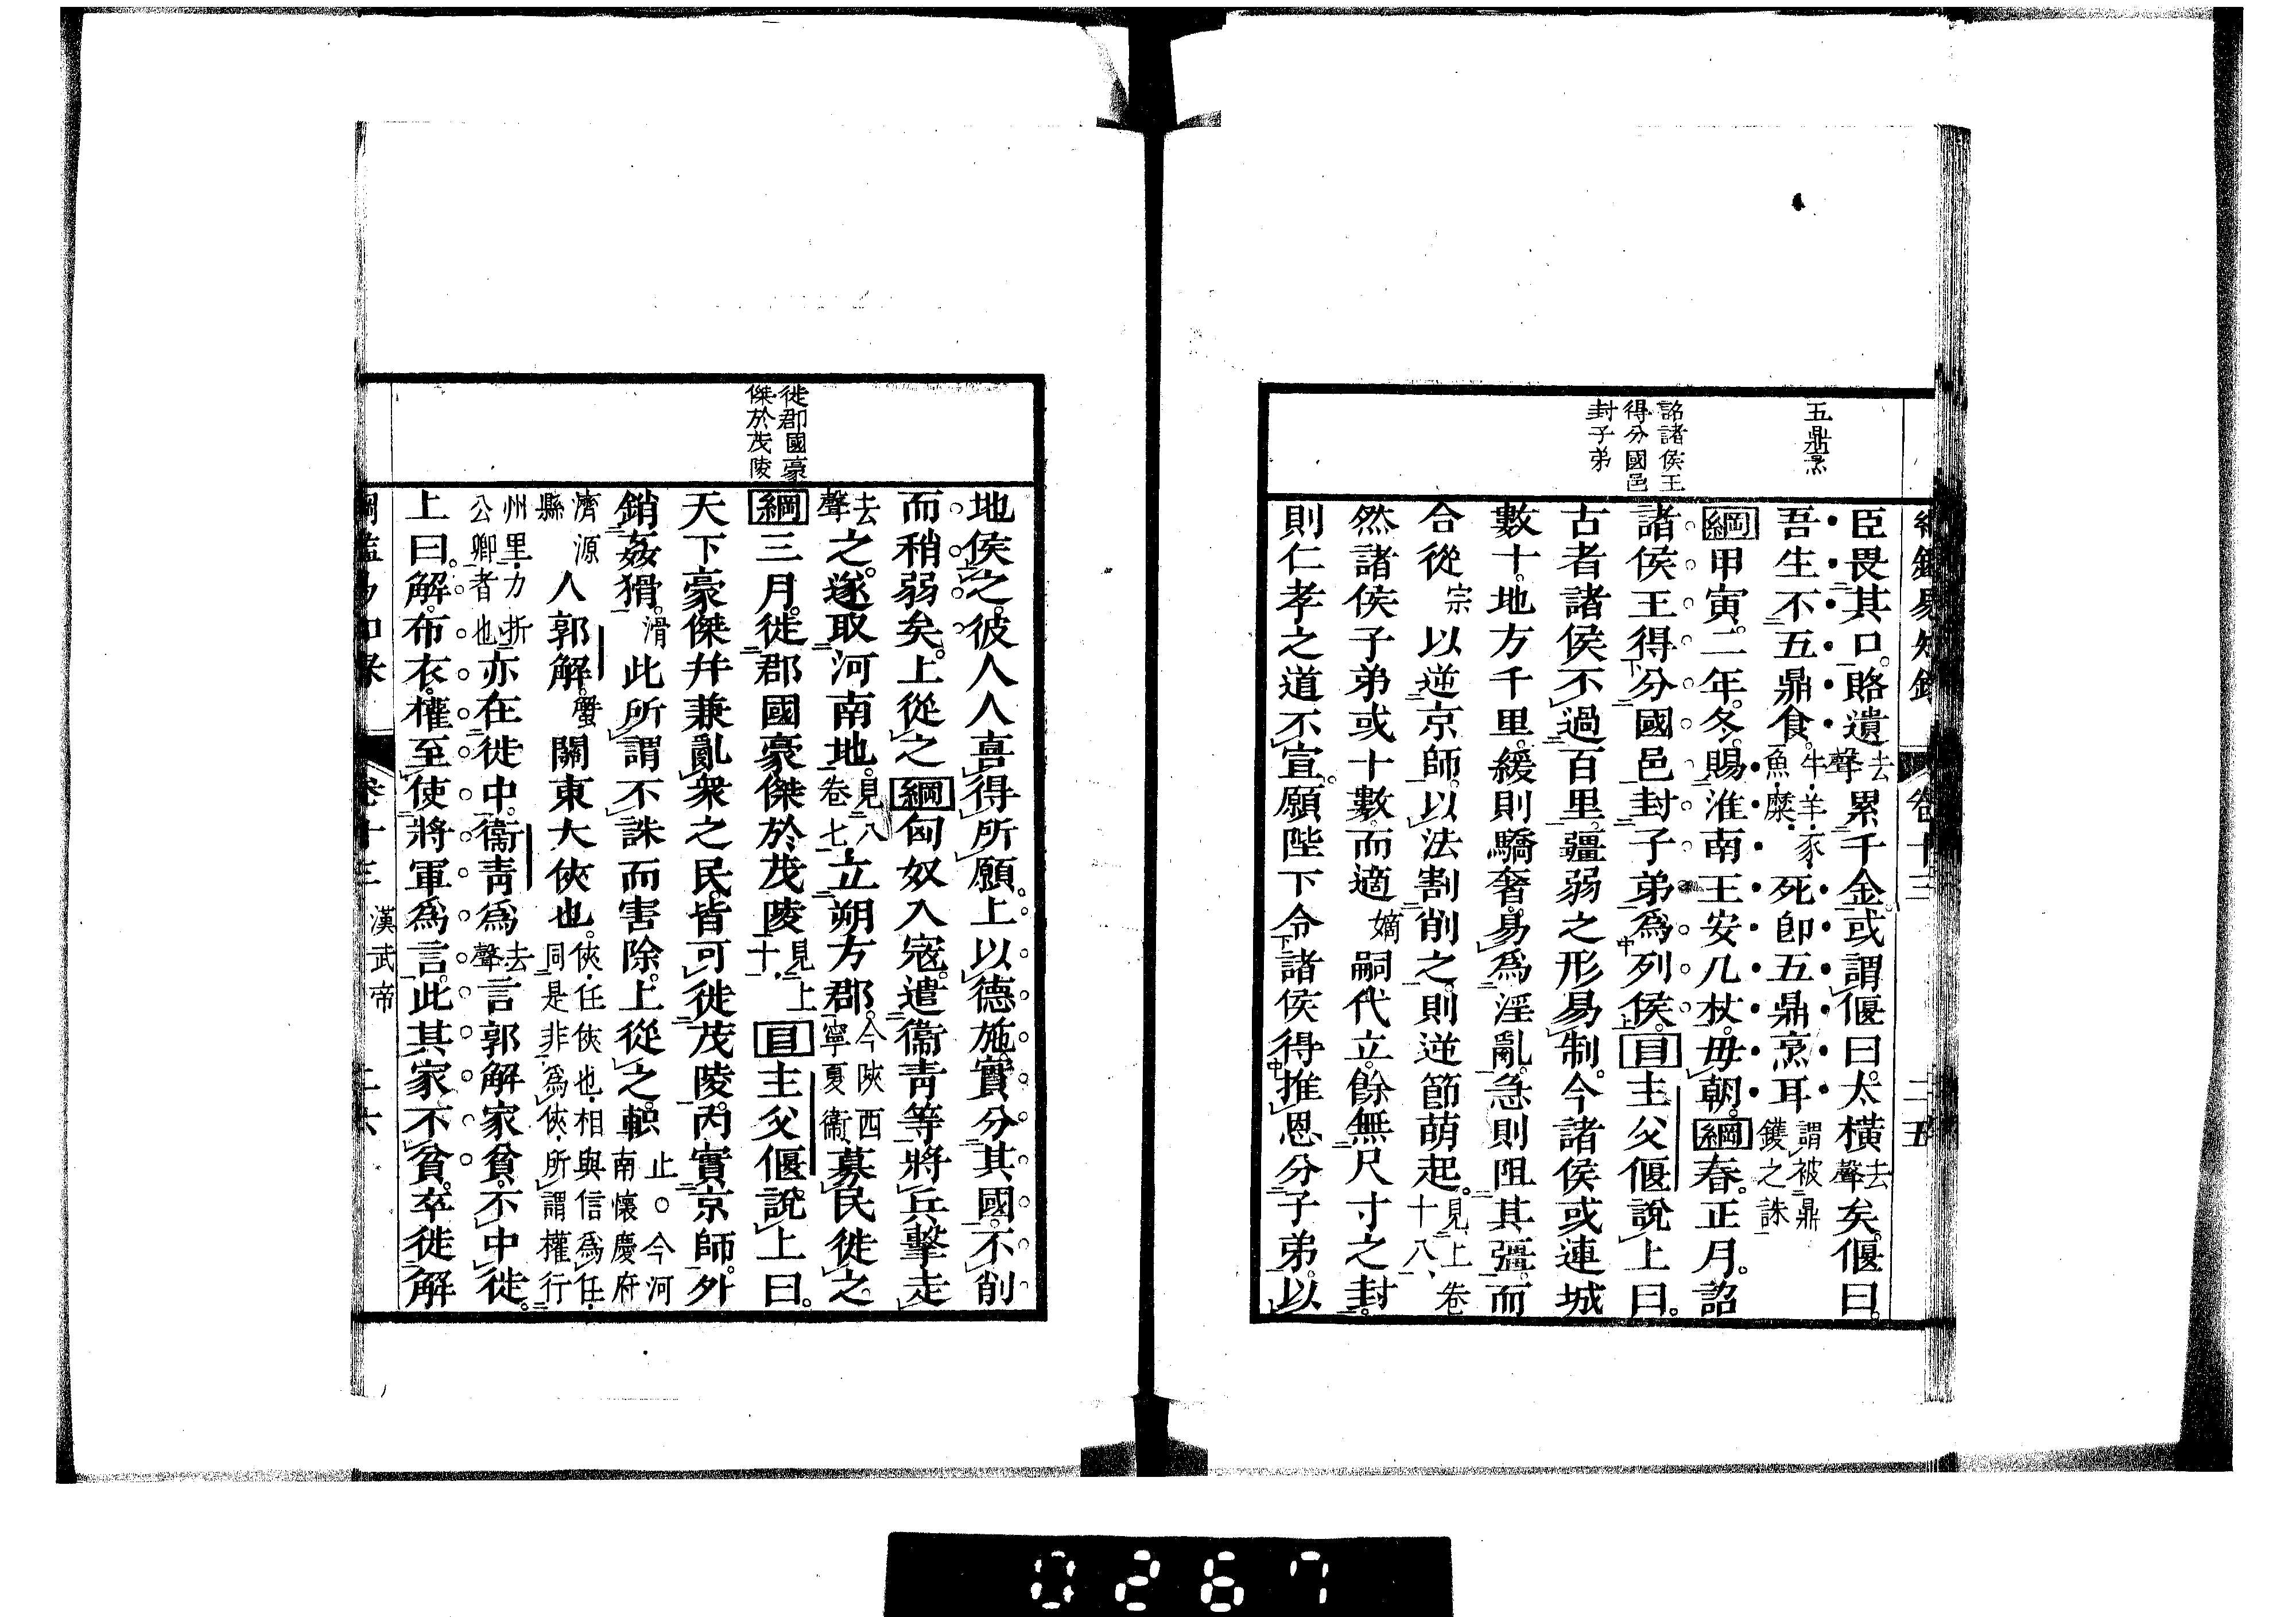 五鼎烹
詔諸侯王
得分國邑
封子弟
臣畏其口。賂遺去聲累千金。或謂偃曰。太橫去聲矣。偃曰。
吾生不五鼎食。牛・羊・豕・魚・麋・死卽五鼎烹耳謂被鼎鑊之誅
綱甲寅。二年。冬。賜淮南王安几杖。毋朝。綱春。正月。詔
諸侯王得分國邑封子弟爲列侯。目主父偃說上曰。
古者諸侯不過百里。疆弱之形易制。今諸侯或連城
數十。地方千里。緩則驕奢。易爲淫亂。急則阻其彊。而
合從宗以逆京師。以法割削之。則逆節萌起。見上卷十八、
然諸侯子弟或十數。而適嫡嗣代立。餘無尺寸之封。
則仁孝之道不宣。願陛下令諸侯得推恩分子弟。以
卷十三
二五
徙郡國豪
傑於茂陵
地侯之。彼人人喜得所願。上以德施。實分其國。不削
而稍弱矣。上從之綱匈奴入寇。遣衞靑等將兵擊走
去聲之。遂取河南地。見八卷七、立朔方郡。今陝西寧夏衞、募民徙之。
綱三月。徙郡國豪傑於茂陵見上十、目主父偃說上曰。
天下豪傑幷兼亂衆之民。皆可徙茂陵。內實京師。外
銷姦猾。滑此所謂不誅而害除。上從之。軹止。○今河南懷慶府
濟源縣人郭解。蟹關東大俠也。俠・任俠也・相與信爲任・同是非爲俠・所謂權行
州里・力折公卿者也亦在徙中。衞靑爲去聲言郭解家貧。不中徙。
上曰。解。布衣。權至使將軍爲言。此其家不貧。卒徙解
漢武帝
0267